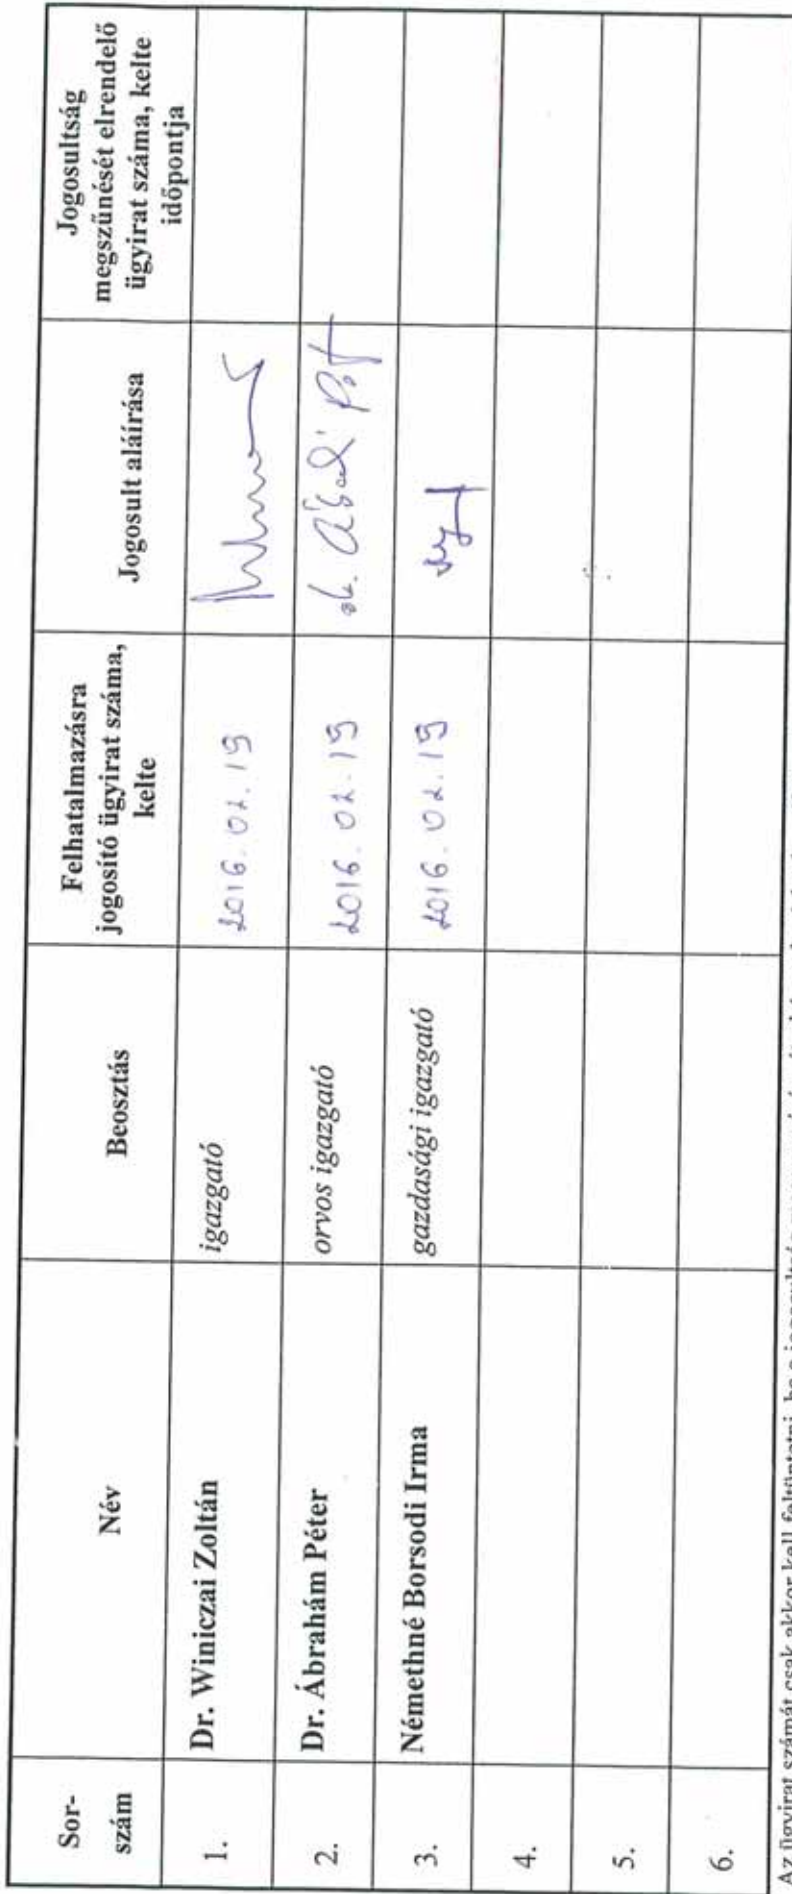 Sor-
szám
Név
Beosztás
Felhatalmazásra
jogosító ügyirat száma,
kelte
Jogosult aláírása
Jogosultság
megszűnését elrendelő
ügyirat száma, kelte
időpontja
1.
Dr. Winiczai Zoltán
igazgató
2016.02.19
2.
Dr. Ábrahám Péter
orvos igazgató
2016.02.19
3.
Némethné Borsodi Irma
gazdasági igazgató
2016.02.19
4.
5.
6.
Az ügyirat számát csak akkor kell feltüntetni, ha a jogosultság